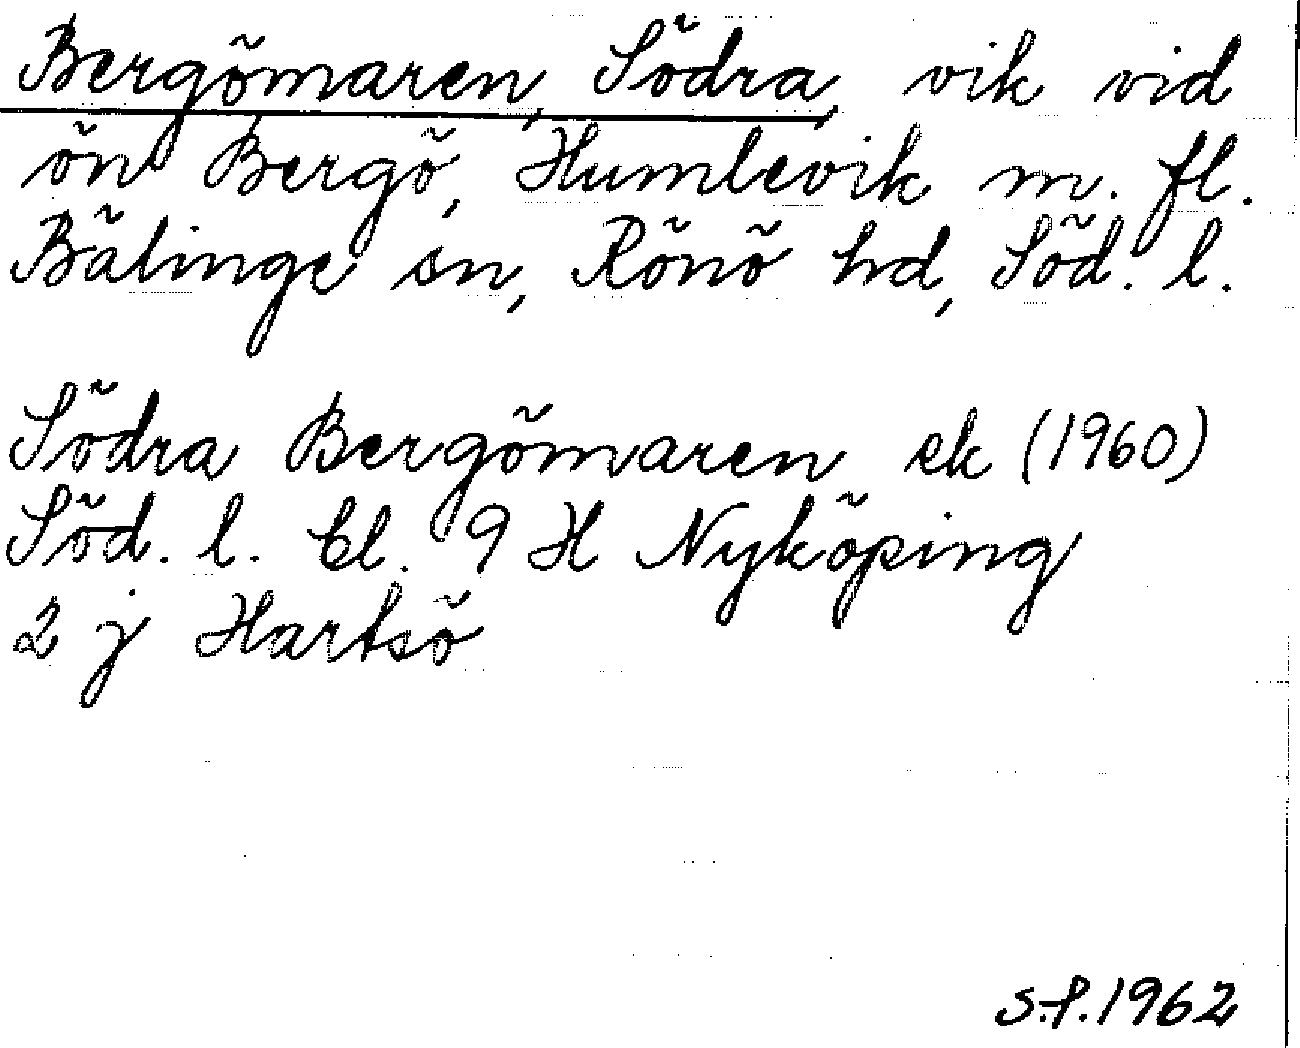 Bergömaren, Södra, vik vid
ön Bergö, Humlevik m. fl.
Bälinge sn, Rönö hd, Söd. l.
Södra Bergömaren ek (1960)
Söd. l. bl. 9 H Nyköping
2 j Hartsö
S.P.1962